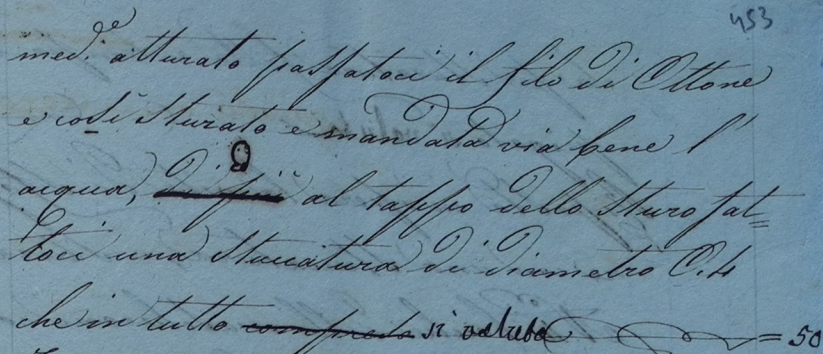 453
med.e atturato passatoci il filo di Ottone
e così sturato e mandata via bene l'
acqua, di più al tappo dello sturo fat=
toci una stuccatura di diametro O. 4
che in tutto compreso si valuta = 50